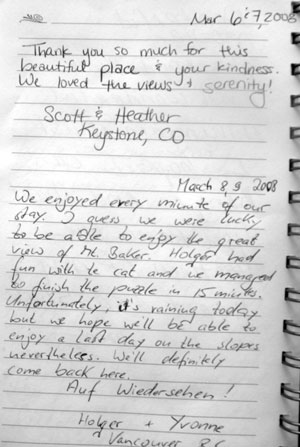 Mar 6 & 7, 2008
Thank you so much for this
beautiful place & your kindness.
We loved the views + serenity!
Scott & Heather
Keystone, CO
Mach 8, 9 2008
We enjoyed every minute of our
stay. I guess we were lucky
to be able to enjoy the great
view of Mt. Baker. Holger had
fun with te cat and we managed
to finish the puzzle in 15 minutes.
Unfortunately, it's raining today
but we hope we'll be able to
enjoy a last day on the slopes
nevertheless. We'll definitely
come back here.
Auf Wiedersehen!
Holger + Yvonne
Vancouver B.C.